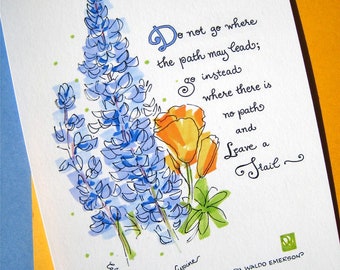 Do not go where
the path may lead;
go instead
where there is
no path
and
Leave a
Trail ~
WALDO EMERSON